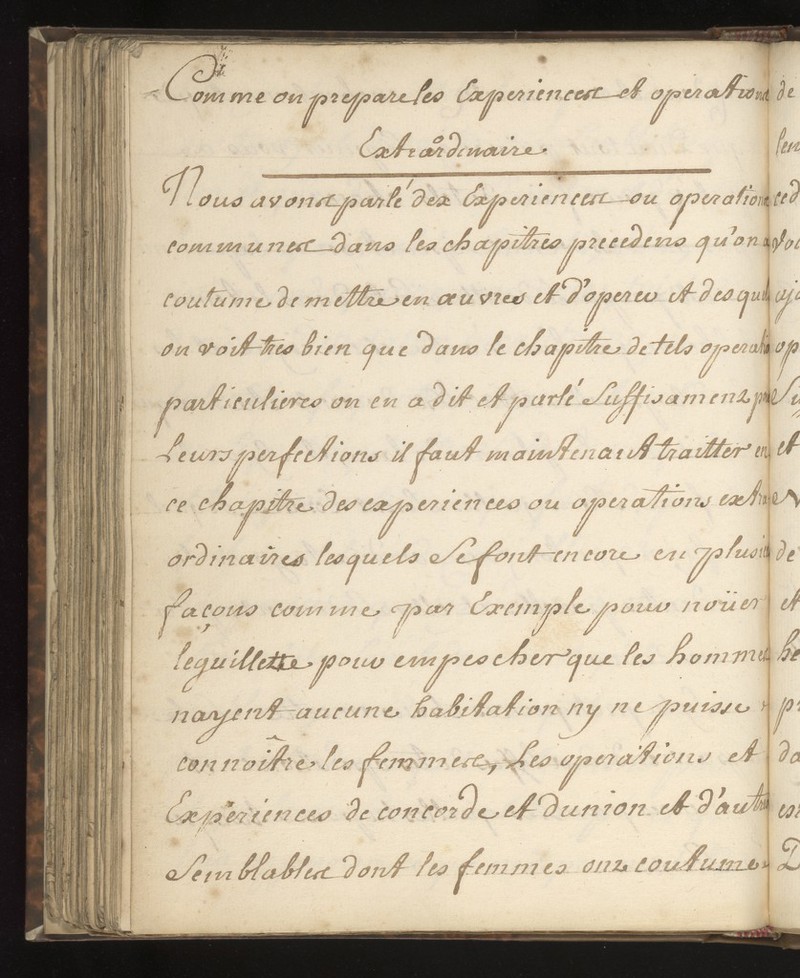 Comme on prepare les Experiences et operations
Extraordinaire
Nous avons parlé des Experiences ou operations
communes dans les chapitres precedens qu'on a
coutume de mettre en œuvres et d'operer et desquels
on voit tres bien que dans le chapitre de tels operati
particulieres on en a dit et parlé Suffisament po
Leurs perfections il faut maintenant traitter en
ce chapitre des experiences ou operations extra
ordinaires lesquels Se font encore en plusie
façons comme par Exemple pour noüer
leguillette pour empescher que les hommes
nayent aucune habitation ny ne puisse
connoître les femmes, Les operations et
Experiences de concorde et dunion et d'autres
Semblables dont les femmes ont coutume
de
ced
ajo
op
Su
et
de
et
he
pr
da